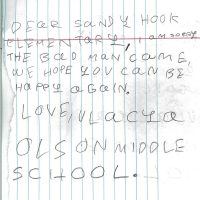 DEAR SANDY HOOK
ELEMENTARY, I AM SORRY
THE BAD MAN CAME,
WE HOPE YOU CAN BE
HAPPY AGAIN.
LOVE, VLACYA
OLSON MIDDLE
SCHOOL.